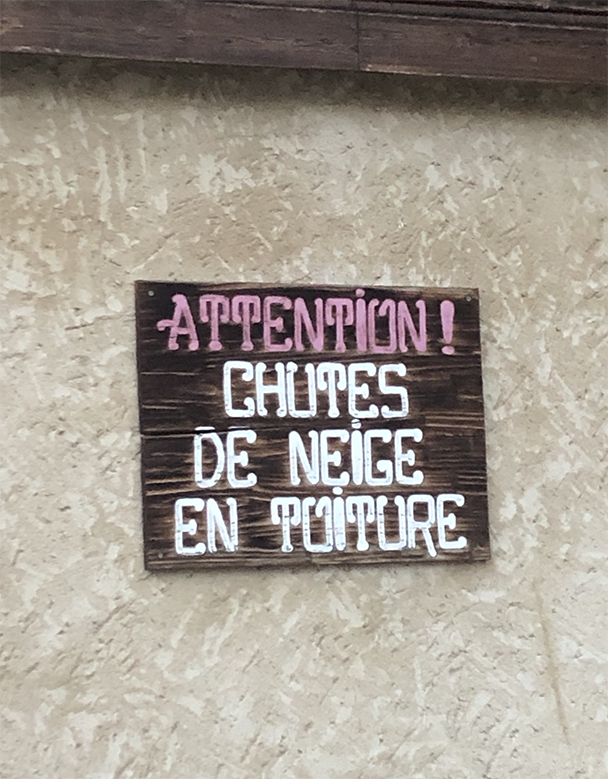 ATTENTION !
CHUTES
DE NEIGE
EN TOITURE